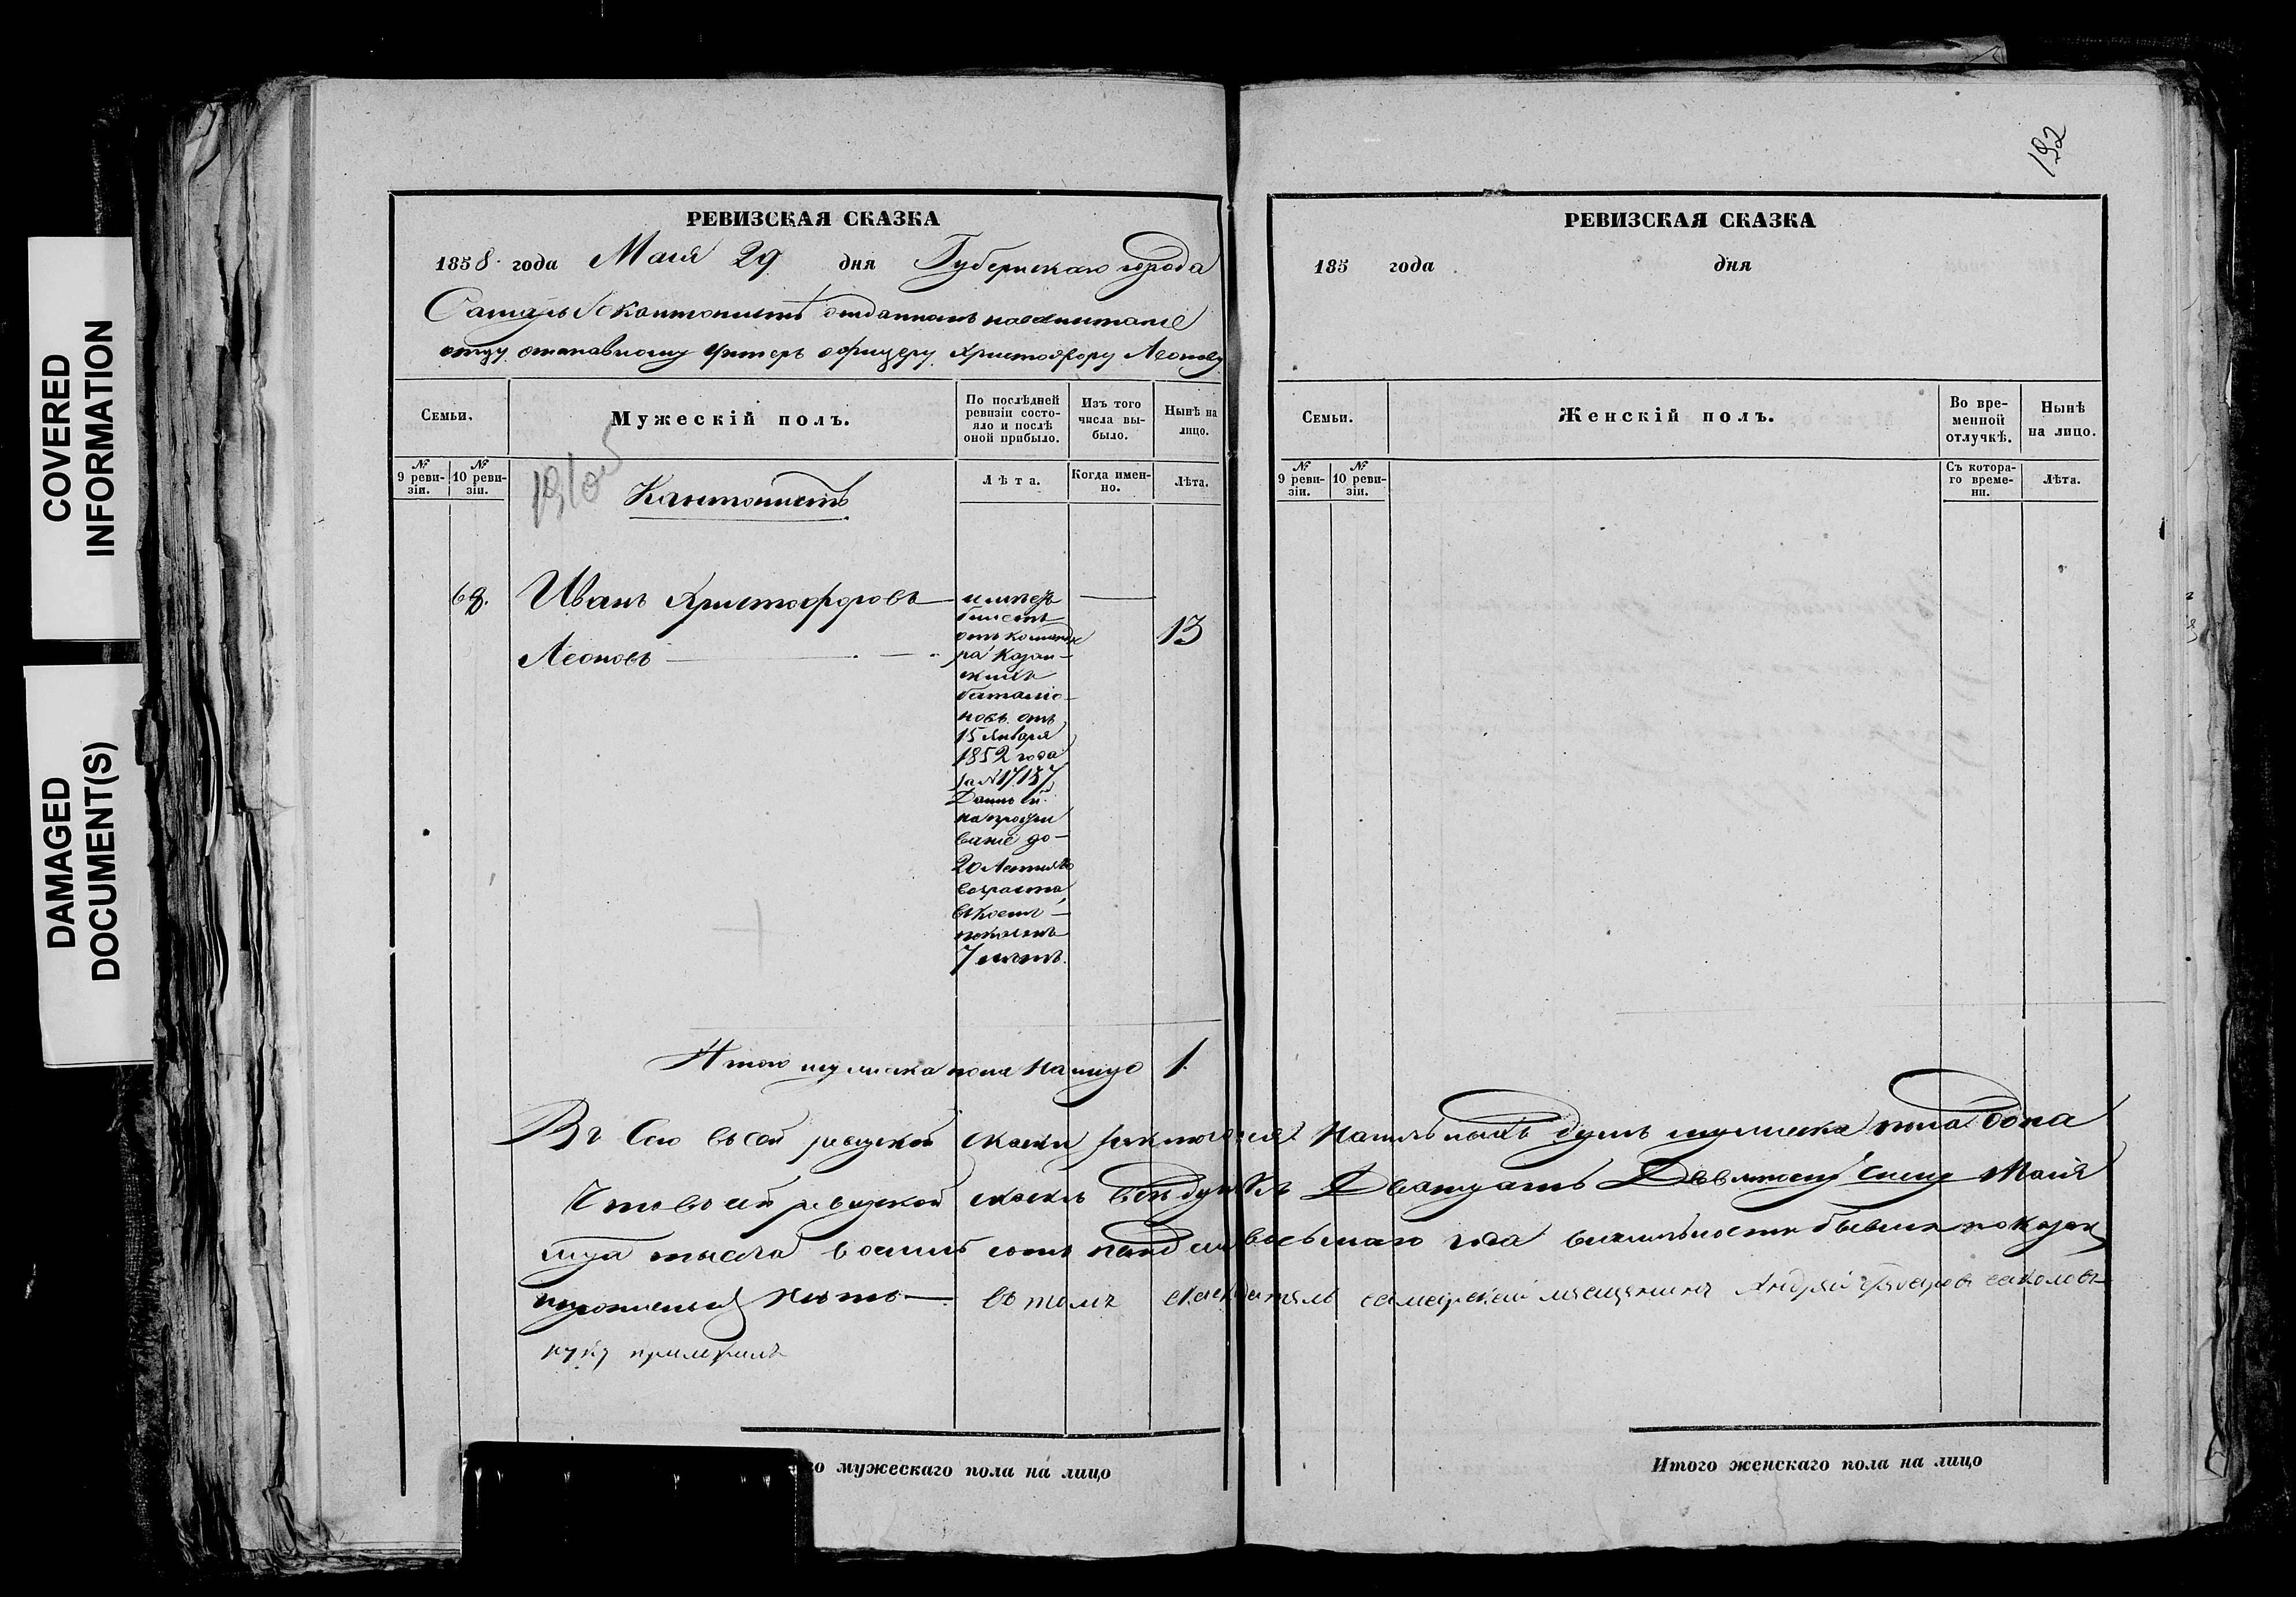 COVERED
INFORMATION
DAMAGED
DOCUMENT(S)
РЕВИЗСКАЯ СКАЗКА
1858 года Маія 29 дня Губернскаго города
Самары Кантонистъ отданномъ на воспитаніе
отцу отставному Унтеръ офицеру Христофору Леонову
Семьи.
Мужескій полъ.
По послѣдней
ревизіи состо-
яло и послѣ
оной прибыло.
Изъ того
числа вы-
было.
Нынѣ на
лицо.
№
9 реви-
зіи.
№
10 реви-
зіи.
Лѣта.
Когда имен-
но.
Лѣта.
Кантонистъ
68.
Иванъ Христофоровъ
Леоновъ
имѣетъ
билетъ
отъ команди
ра Казан-
скихъ
баталіо-
новъ отъ
15 Января
1852 года
за № 17157
Данный
на прожи
ваніе до
20 Летняго
возраста
въ коемъ
показанъ
7 летъ.
13
Итого мужеска пола на лицо 1.
В сей ревизкой сказки заключается наличныхъ душъ мужеска пола одна
Что в сей ревизкой сказкѣ всѣ души къ Двадцать Девятому числу Маія
тысяча восемь сотъ пятдесятъ восьмаго года в наличности бывшія показаны
и прописныхъ нетъ въ томъ самарской мещанинъ Андрей Соколовъ
руку приложилъ
Итого мужескаго пола на лицо
192
РЕВИЗСКАЯ СКАЗКА
185 года дня
Семьи.
Женскій полъ.
Во вре-
менной
отлучкѣ.
Нынѣ
на лицо.
№
9 реви-
зіи.
№
10 реви-
зіи.
Съ котора-
го време-
ни.
Лѣта.
Итого женскаго пола на лицо